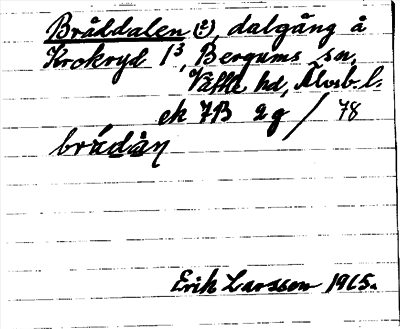 Bråddalen (?), dalgång å
Krokryd 1³, Bergums sn,
Vättle hd, Älvsb. l.
ek 7B 2g / 78
brådàn
Erik Larsson 1915.